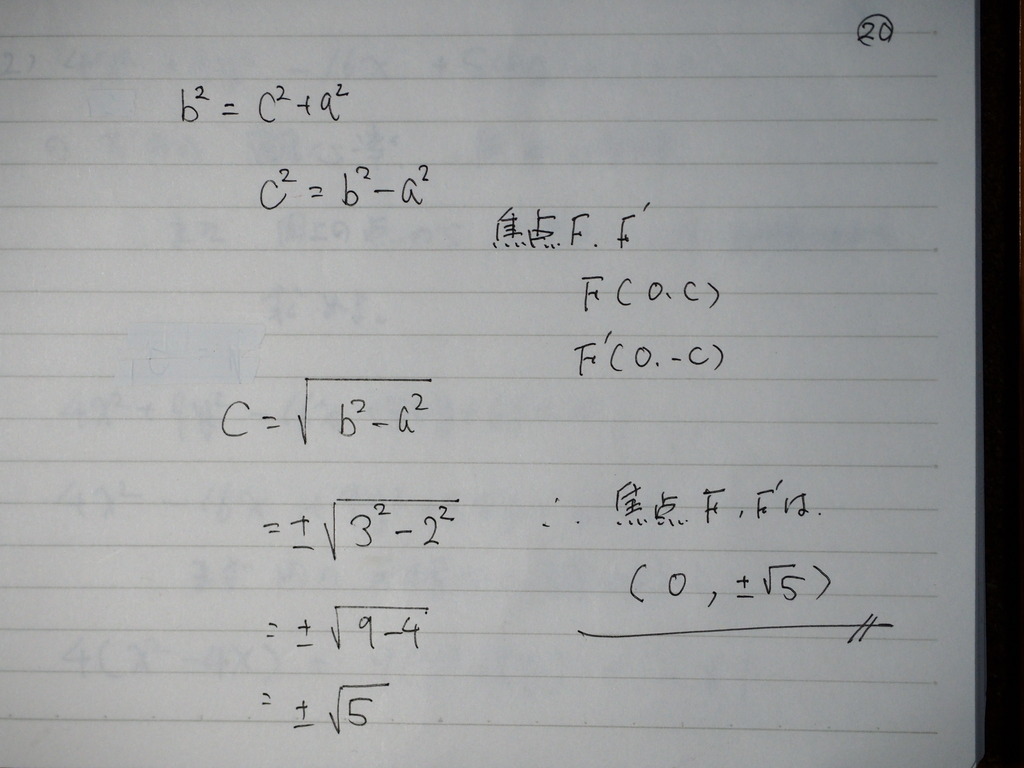 ⑳
b² = c² + a²
c² = b² - a²
焦点 F. F'
F (0. c)
F' (0. -c)
C = √(b² - a²)
= ±√(3² - 2²)
∴ 焦点 F, F'は.
(0, ±√5)
= ±√(9-4)
= ±√5